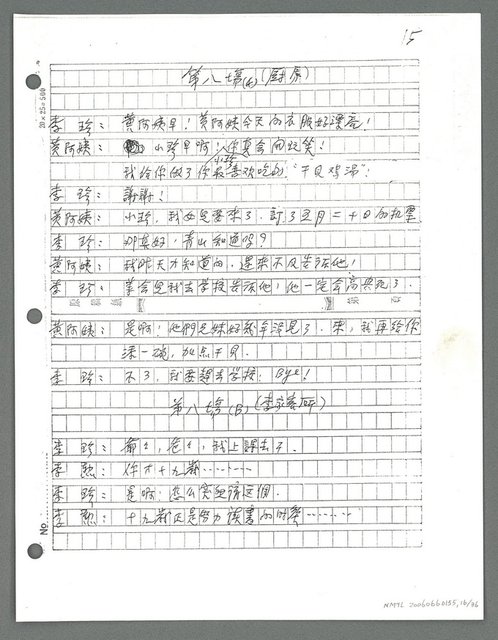 15
第八場(A)(廚房)
李 玲：黃阿姨早！黃阿姨今天的衣服好漂亮！
黃阿姨：小玲早啊！你真会開玩笑！
小玲
我给你做了你最喜欢吃的“干贝鸡湯”。
李 玲：謝謝！
黃阿姨：小玲，我女兒要來了，訂了五月二十日的机票
李 玲：那真好，青山知道嗎？
黃阿姨：我昨天才知道的，還來不及告诉他！
李 玲：等会兒我去学校告诉他，他一定会高興死了．
黃阿姨：是啊！他們兄妹好幾年沒見了．來，我再给你
添一碗，加点干貝．
李 玲：不了，我要趕去学校，Bye！
第八場(B)(李家客厅)
李 玲：爺爺，爸爸，我上課去了．
李 勲：你才十九歲……
李 玲：是啊！怎么突然
李 勲：十九歲正是努力讀書的时
20×25=500
No.
NMTL 20060660155, 16/36